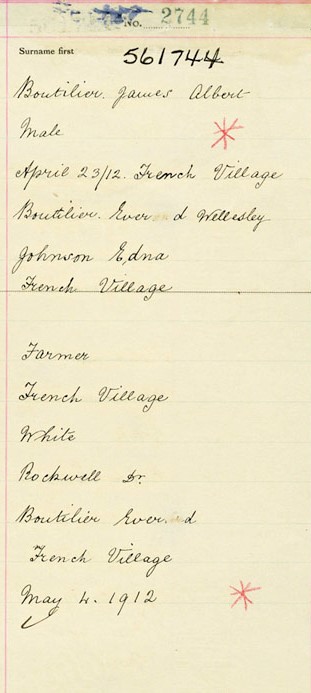 No. 2744
Surname first
561744
Boutilier. James Albert
Male
April 23/12. French Village
Boutilier. Ever d Wellesley
Johnson Edna
French Village
Farmer
French Village
White
Rockwell Dr.
Boutilier Ever. d
French Village
May 4. 1912